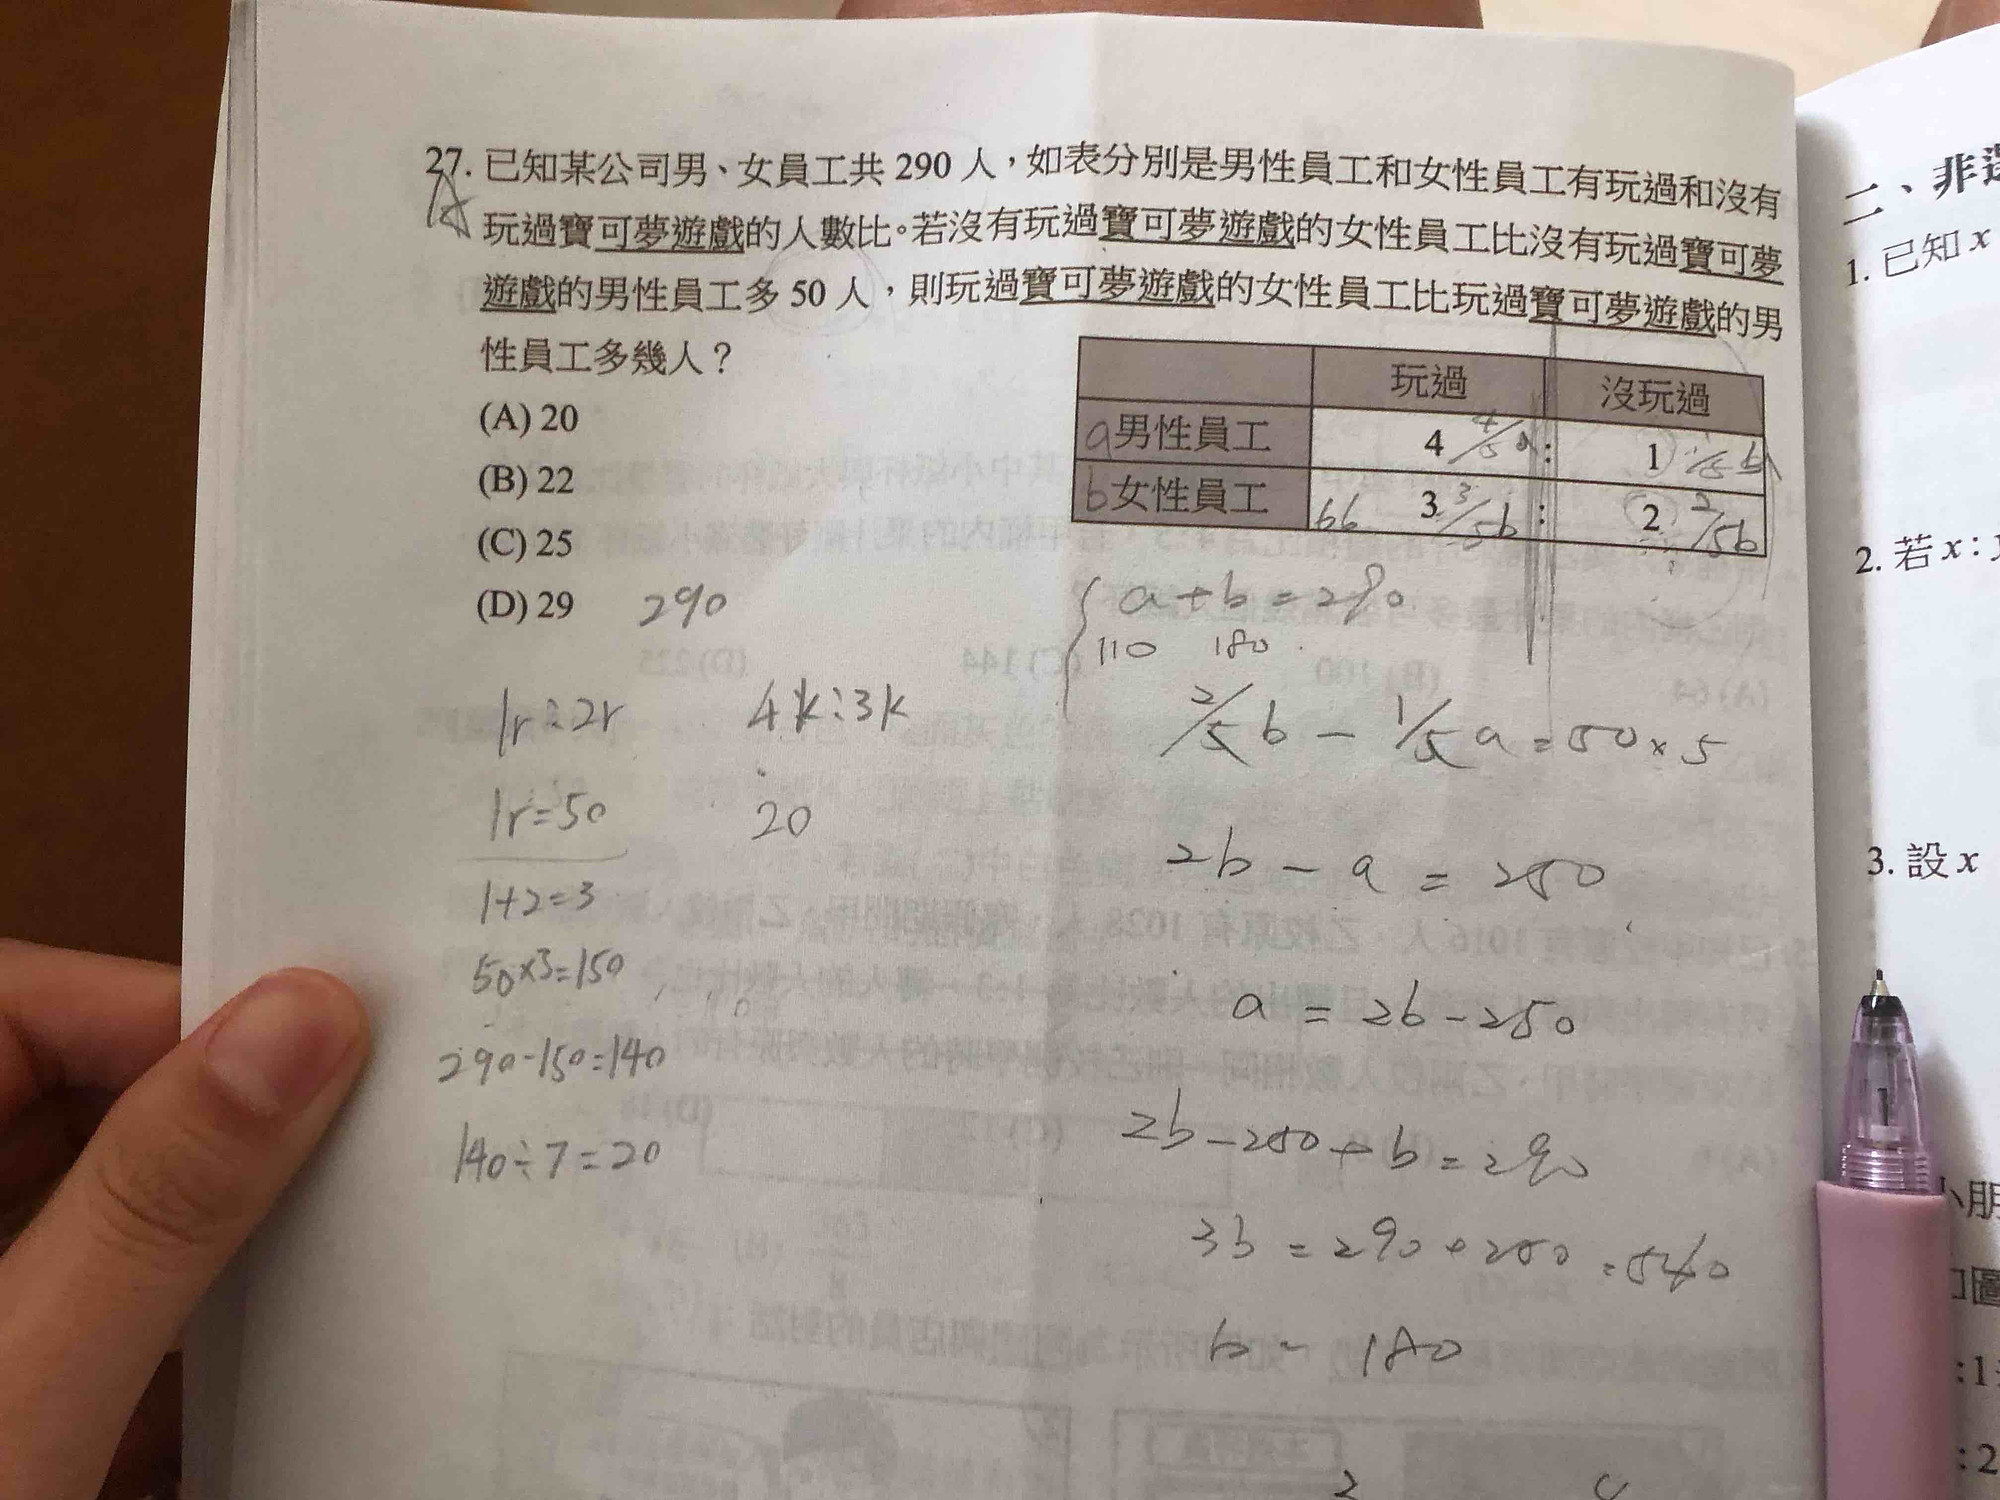 27. 已知某公司男、女員工共 290 人，如表分別是男性員工和女性員工有玩過和沒有
玩過寶可夢遊戲的人數比。若沒有玩過寶可夢遊戲的女性員工比沒有玩過寶可夢
遊戲的男性員工多 50 人，則玩過寶可夢遊戲的女性員工比玩過寶可夢遊戲的男
性員工多幾人？
(A) 20
(B) 22
(C) 25
(D) 29 290
玩過 沒玩過
a 男性員工 4 4/5 a : 1 1/5 b
b 女性員工 66 3 3/5 b : 2 2/5 b
a + b = 290
110 180
2/5 b - 1/5 a = 50 × 5
2b - a = 250
a = 2b - 250
2b - 250 + b = 290
3b = 290 + 250 = 540
b = 180
1r : 2r
1r = 50
1+2=3
50×3=150
290-150=140
140÷7=20
4k : 3k
20
二、非
1. 已知 x
2. 若 x :
3. 設 x
小朋
如圖
: 1
: 2